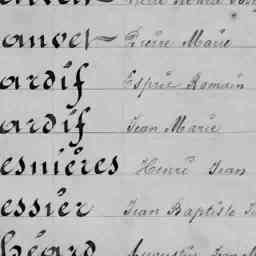 anvet Pierre Marie
ardif Esprit Romain
ardif Jean Marie
esnières Henri Jean
essier Jean Baptiste
héard Augustin